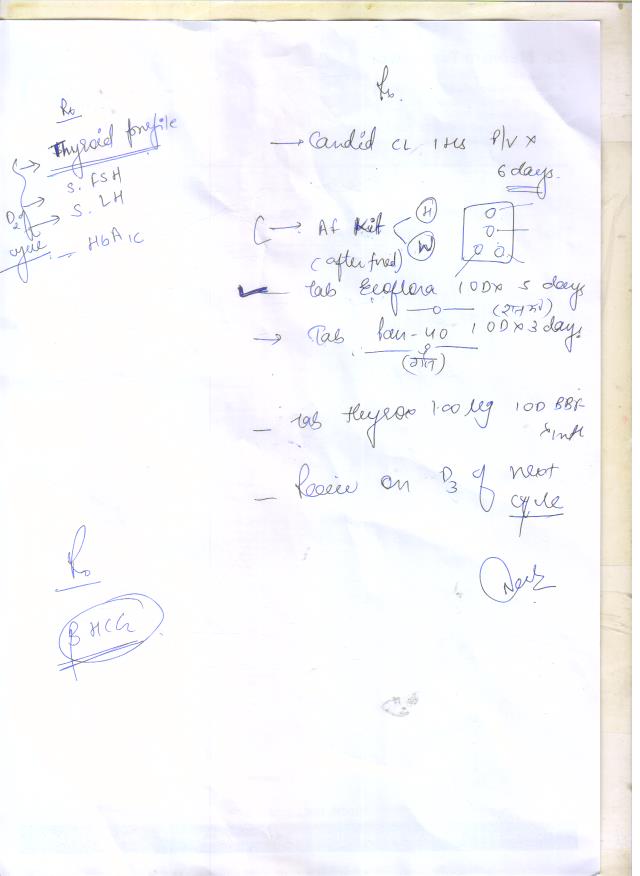 Rx
Thyroid profile
S. FSH
S. LH
D2 of cycle
HbA1c
Rx
Candid CL 1 HS P/V x
6 days
AF Kit H
W
(after food)
Tab Ecoflora 1 OD x 5 days
Tab Pan-40 1 OD x 3 days
Tab Thyrox 100 µg 1 OD BBF
Review on D3 of next
cycle
Rx
β HCG